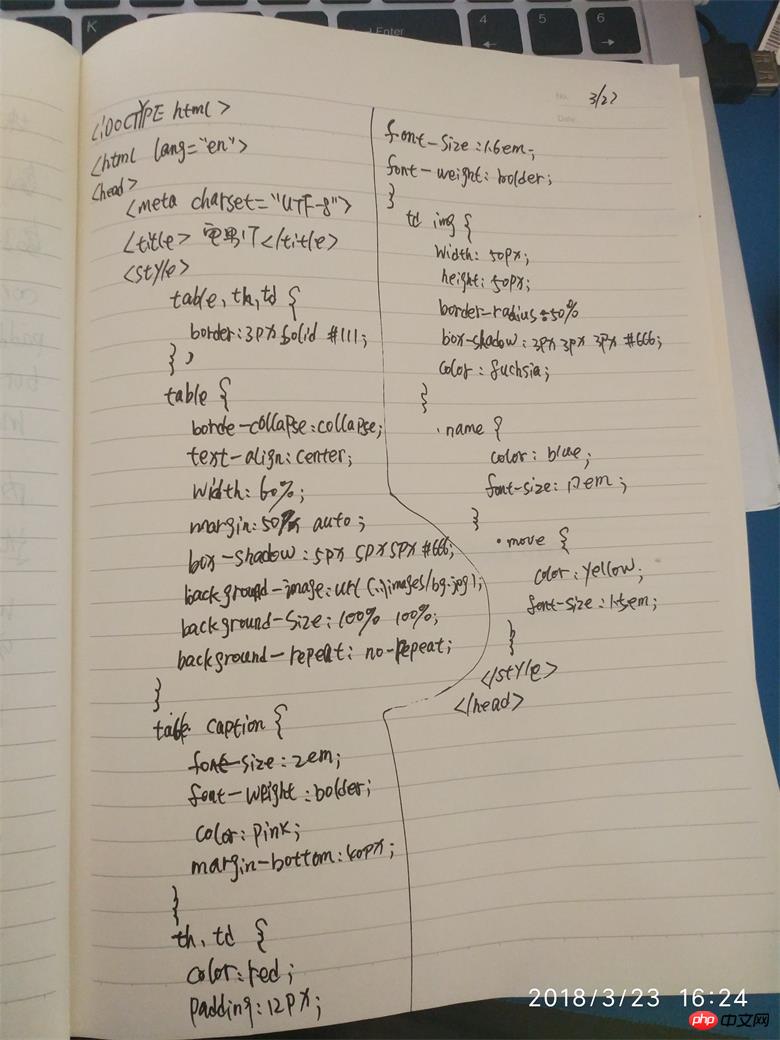 K
Enter
4
5
6
3/27
<!DOCTYPE html>
<html lang="en">
<head>
<meta charset="UTF-8">
<title> </title>
<style>
table, th, td {
border: 3px solid #111;
}
table {
borde-collapse: collapse;
text-align: center;
width: 60%;
margin: 50px auto;
box-shadow: 5px 5px 5px #666;
background-image: url (images/bg.jpg);
background-size: 100% 100%;
background-repeat: no-repeat;
}
table caption {
font-size: 2em;
font-weight: bolder;
color: pink;
margin-bottom: 40px;
}
th, td {
color: red;
padding: 12px;
font-size: 1.6em;
font-weight: bolder;
}
td img {
width: 50px;
height: 50px;
border-radius: 50%
box-shadow: 3px 3px 3px #666;
color: fuchsia;
}
.name {
color: blue;
font-size: em;
}
.move {
color: yellow;
font-size: 1.5em;
}
</style>
</head>
2018/3/23 16:24
php 中文网